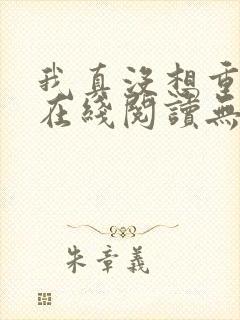 我真沒想重
在綫閱讀無
朱章義